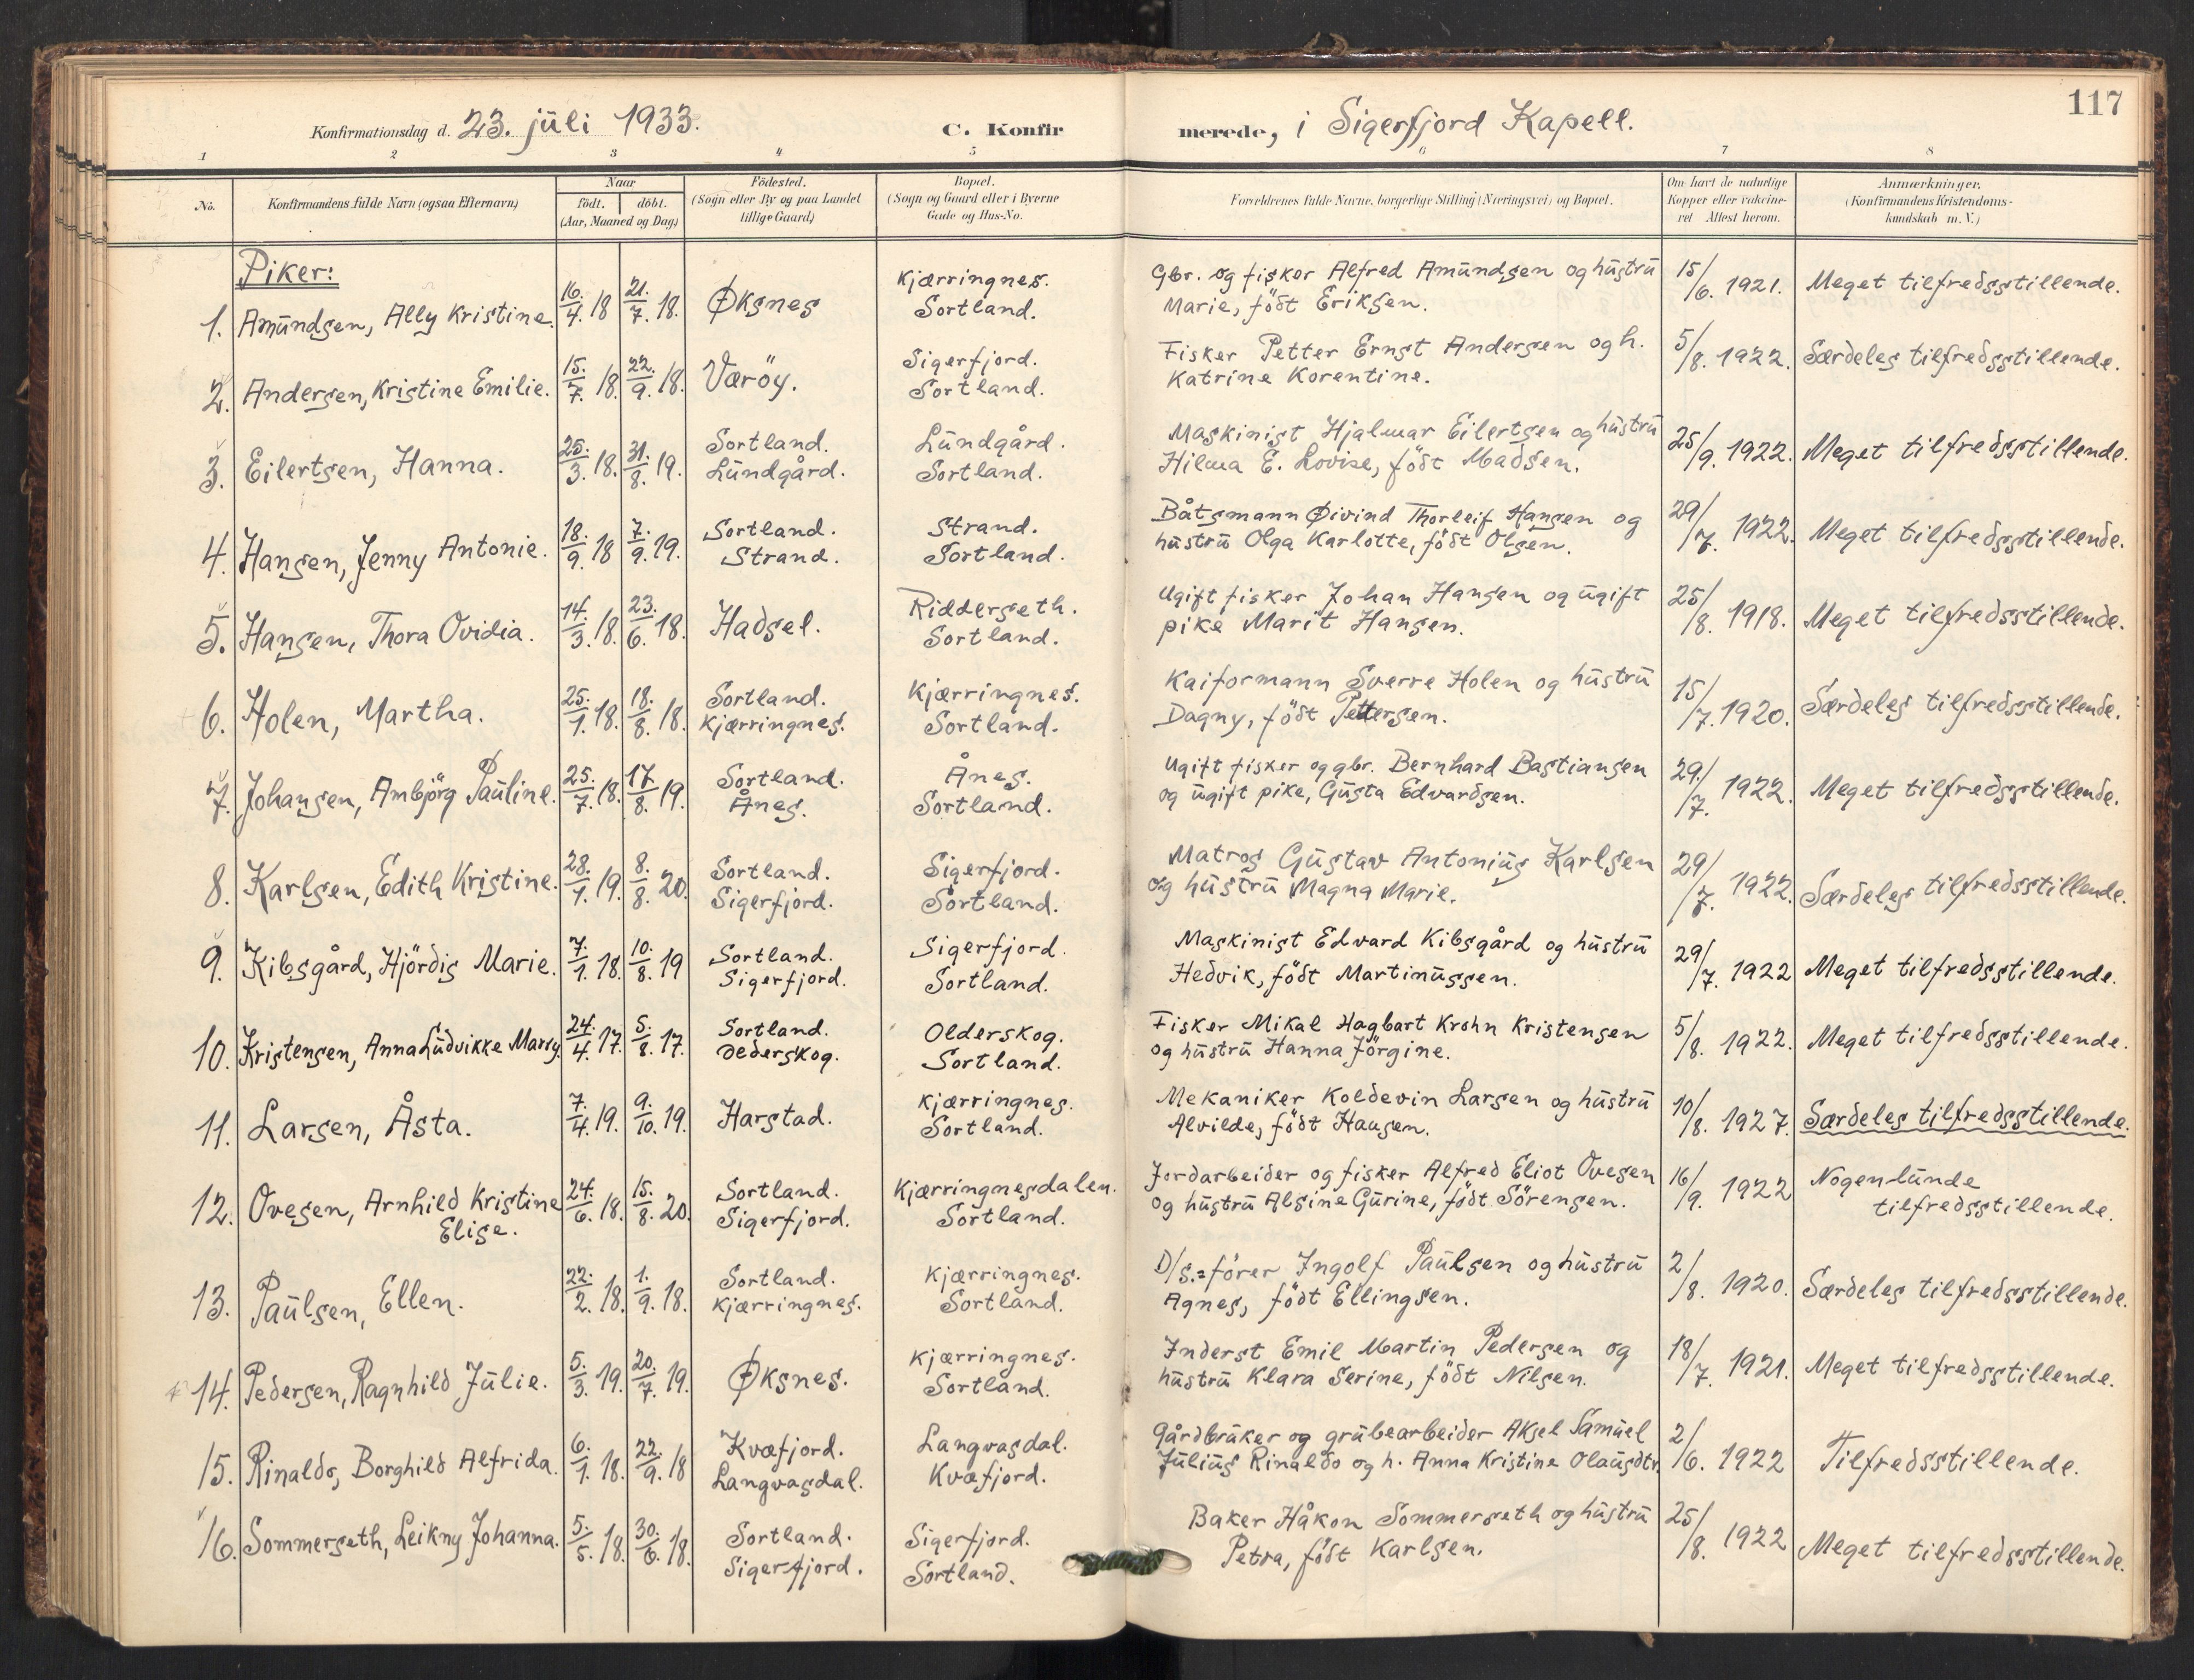 117
Konfirmationsdag d. 23. juli 1933. C. Konfirmerede, i Sigerfjord Kapell.
1 2 3 4 5 6 7 8
No.
Konfirmandens fulde Navn (ogsaa Efternavn)
Naar
födt. döbt.
(Aar, Maaned og Dag)
Födested.
(Sogn eller By og paa Landet
tillige Gaard)
Bopæl.
(Sogn og Gaard eller i Byerne
Gade og Hus-No.
Forældrenes fulde Navne, borgerlige Stilling (Næringsvei) og Bopæl.
Om havt de naturlige
Kopper eller vaccine-
ret Attest herom.
Anmærkninger.
(Konfirmandens Kristendoms-
kundskab m. V.)
Piker:
1. Amundsen, Ally Kristine. 16./4. 18 21./7. 18. Øksnes
Kjærringnes.
Sortland.
Gbr. og fisker Alfred Amundsen og hustru
Marie, födt Eriksen.
15/6. 1921. Meget tilfredsstillende.
2. Andersen, Kristine Emilie. 15./7. 18. 22./9. 18. Værøy.
Sigerfjord.
Sortland.
Fisker Petter Ernst Andersen og h.
Katrine Korentine.
5/8. 1922. Særdeles tilfredsstillende.
3. Eilertsen, Hanna. 25./3. 18. 31./8. 19.
Sortland.
Lundgård.
Lundgård.
Sortland.
Maskinist Hjalmar Eilertsen og hustru
Hilma E. Lovise, födt Madsen.
25/9. 1922. Meget tilfredsstillende.
4. Hansen, Jenny Antonie. 18./9. 18 7./9. 19.
Sortland.
Strand.
Strand.
Sortland.
Båtsmann Øivind Thorleif Hansen og
hustru Olga Karlotte, födt Olsen.
29/7. 1922. Meget tilfredsstillende.
5. Hansen, Thora Ovidia. 14./3. 18. 23./6. 18. Hadsel.
Ridderseth.
Sortland.
Ugift fisker Johan Hansen og ugift
pike Marit Hansen.
25/8. 1918. Meget tilfredsstillende.
6. Holen, Martha. 25./1. 18. 18./8. 18.
Sortland.
Kjærringnes.
Kjærringnes.
Sortland.
Kaiformann Sverre Holen og hustru
Dagny, födt Pettersen.
15/7. 1920. Særdeles tilfredsstillende.
7. Johansen, Ambjörg Pauline. 25./7. 18. 17./8. 19.
Sortland.
Ånes.
Ånes.
Sortland.
Ugift fisker og gbr. Bernhard Bastiansen
og ugift pike, Gusta Edvardsen.
29./7. 1922. Meget tilfredsstillende.
8. Karlsen, Edith Kristine. 28./1. 19. 8./8. 20.
Sortland.
Sigerfjord.
Sigerfjord.
Sortland.
Matros Gustav Antonius Karlsen
og hustru Magna Marie.
29/7. 1922. Særdeles tilfredsstillende.
9. Kibsgård, Hjördis Marie. 7./1. 18. 10./8. 19
Sortland.
Sigerfjord.
Sigerfjord.
Sortland.
Maskinist Edvard Kibsgård og hustru
Hedvik, födt Martinussen.
29/7. 1922 Meget tilfredsstillende.
10. Kristensen, Anna Ludvikke Marry. 24./4. 17. 5./8. 17.
Sortland.
Olderskog.
Sortland.
Fisker Mikal Hagbart Krohn Kristensen
og hustru Hanna Jörgine.
5/8. 1922. Meget tilfredsstillende.
11. Larsen, Åsta. 7./4. 19. 9./10. 19. Harstad.
Kjærringnes.
Sortland.
Mekaniker Koldevin Larsen og hustru
Alvilde, födt Haugen.
10/8. 1927. Særdeles tilfredsstillende.
12. Ovesen, Arnhild Kristine
Elise.
24./6. 18. 15./8. 20.
Sortland.
Sigerfjord.
Kjærringnesdalen.
Sortland.
Jordarbeider og fisker Alfred Eliot Ovesen
og hustru Alsine Gurine, födt Sörensen.
16/9. 1922
Nogenlunde
tilfredsstillende.
13. Paulsen, Ellen. 22./2. 18. 1./9. 18.
Sortland.
Kjærringnes.
Kjærringnes.
Sortland.
D/S.=förer Ingolf Paulsen og hustru
Agnes, födt Ellingsen.
2/8. 1920. Særdeles tilfredsstillende.
14. Pedersen, Ragnhild Julie. 5./3. 19. 20./7. 19. Øksnes.
Kjærringnes.
Sortland.
Inderst Emil Martin Pedersen og
hustru Klara Serine, födt Nilsen.
18/7. 1921. Meget tilfredsstillende.
15. Rinaldo, Borghild Alfrida. 6./1. 18. 22./9. 18
Kvæfjord.
Langvasdal.
Langvasdal.
Kvæfjord.
Gårdbruker og grubearbeider Aksel Samuel
Julius Rinaldo og h. Anna Kristine Olausdtr.
2/6. 1922 Tilfredsstillende.
16. Sommerseth, Leikny Johanna. 5./5. 18. 30./6. 18.
Sortland.
Sigerfjord.
Sigerfjord.
Sortland.
Baker Håkon Sommerseth og hustru
Petra, födt Karlsen.
25/8. 1922 Meget tilfredsstillende.